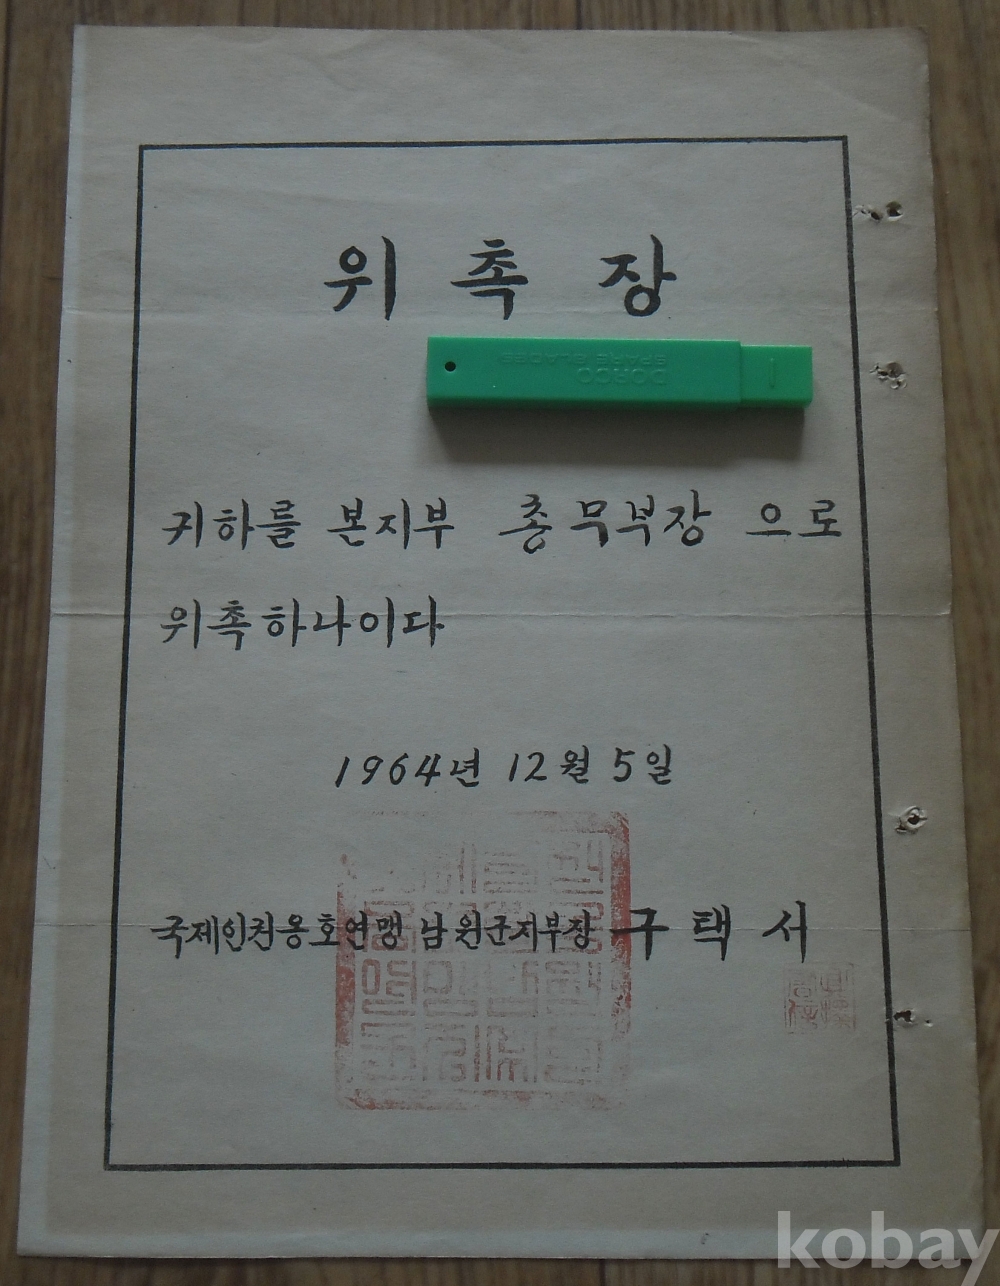 위 촉 장
DORCO
SPARE BLADES
귀하를 본지부 총무부장 으로
위촉하나이다
1964년 12월 5일
국제인권옹호연맹 남원군지부장 구 택 서
kobay